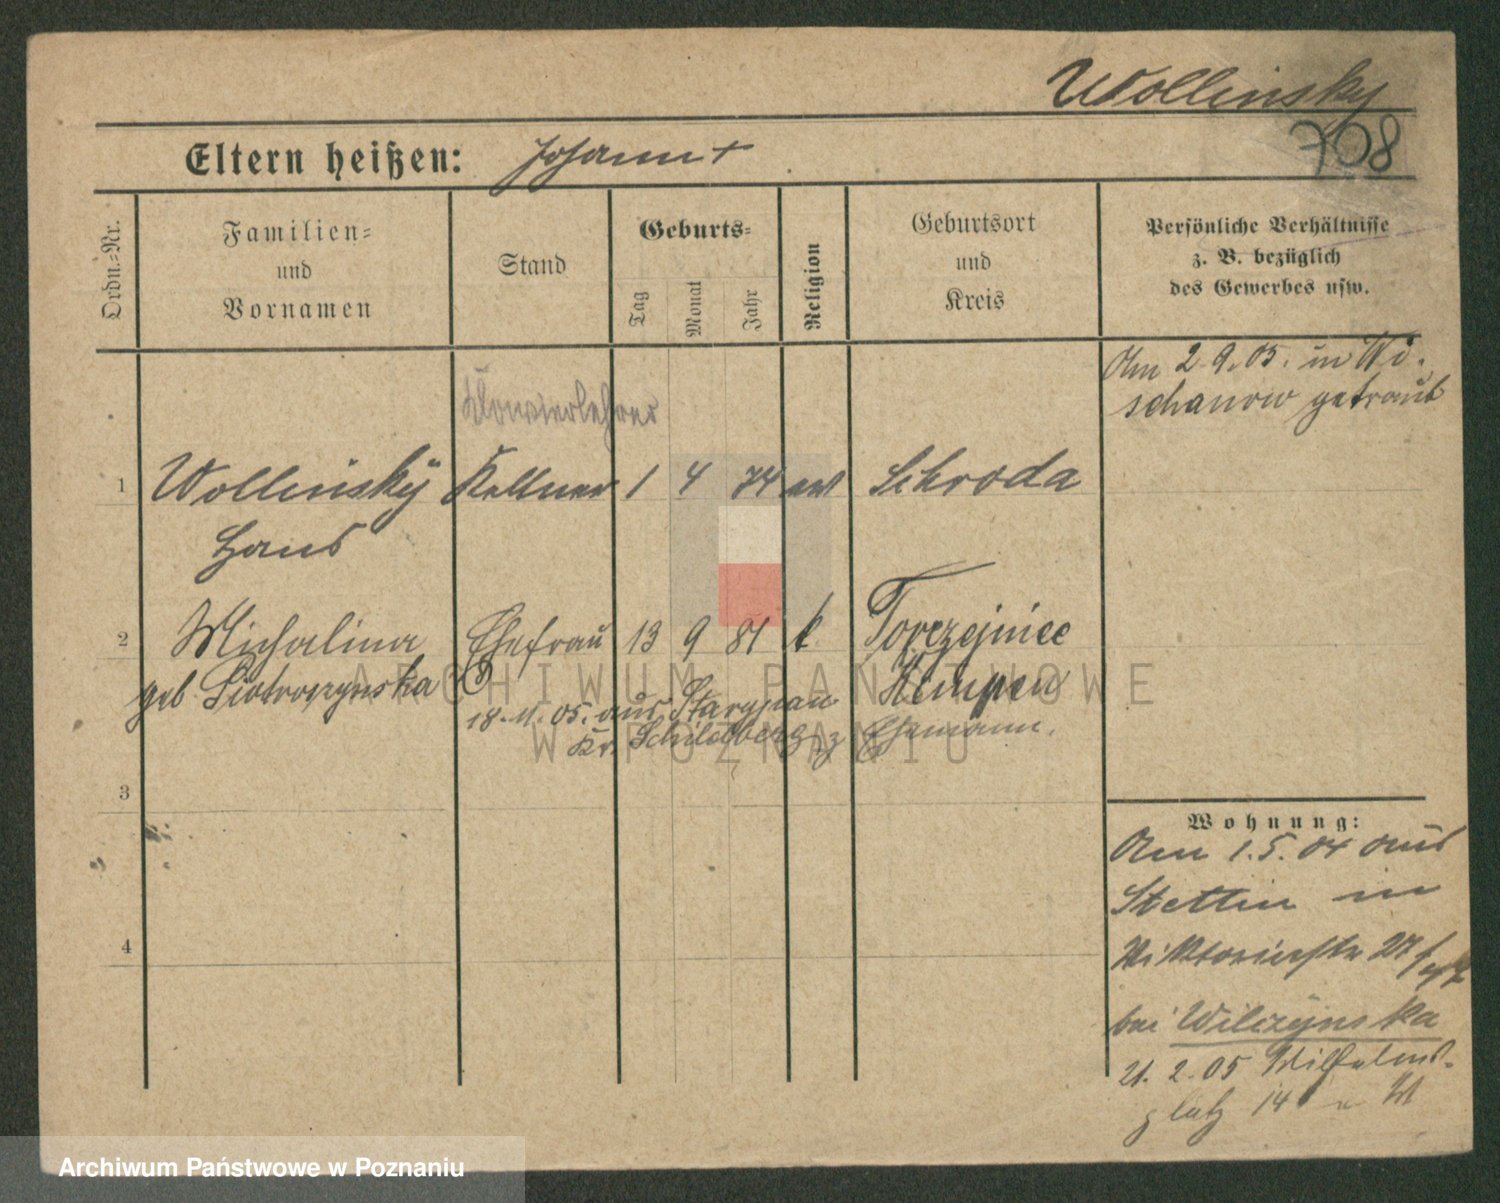 Wollinsky
708
Eltern heißen: Johann +
Ordn.=Nr.
Familien=
und
Vornamen
Stand
Geburts=
Tag
Monat
Jahr
Religion
Geburtsort
und
Kreis
Persönliche Verhältnisse
z. B. bezüglich
des Gewerbes usw.
Am 2.9.05. in Wi-
schanow getraut
1 Wollinský Kellner 1 4 74 ev Schroda
Hans
2 Michalina Ehefrau 13 9 81 k Torzejniec
geb. Piotroczynska Kempen
18.11.05. aus
Kr. Schildberg z Ehemann.
3
4
Wohnung:
Am 1.5.04 aus
Stettin in
Viktoriastr 27
bei Wilczýnska
21.2.05 Wilhelms-
platz 14
ARCHIWUM PAŃSTWOWE
W POZNANIU
Archiwum Państwowe w Poznaniu